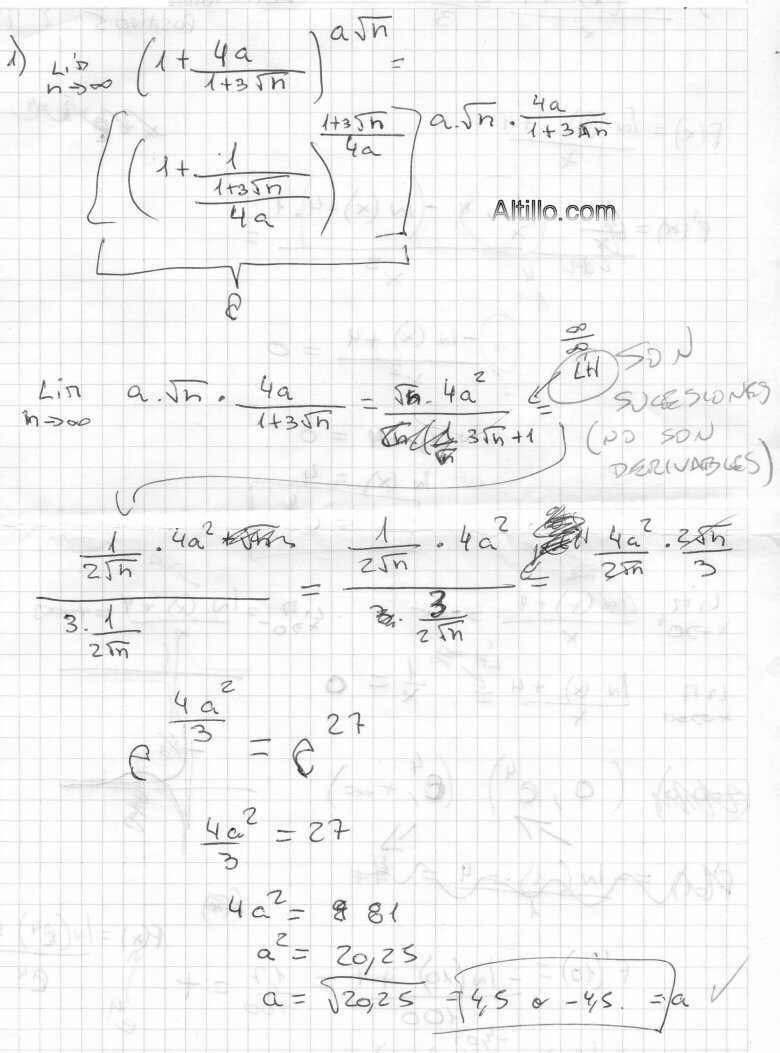 1) Lim n→∞ (1 + 4a/(1+3√n))^(a√n) =
[(1 + 1/((1+3√n)/4a))^((1+3√n)/4a)]^(a.√n · 4a/(1+3√n))
Altillo.com
e
∞/∞
Lim n→∞ a.√n · 4a/(1+3√n) = √n · 4a²/(3√n+1) = L'H SON
SUCESIONES
(NO SON
DERIVABLES)
(1/(2√n) · 4a²)/(3 · 1/(2√n)) = (1/(2√n) · 4a²)/(3/(2√n)) = 4a²/(2√n) · 2√n/3
e^(4a²/3) = e^27
4a²/3 = 27
4a² = 81
a² = 20,25
a = √20,25 = 4,5 o -4,5. = a ✓